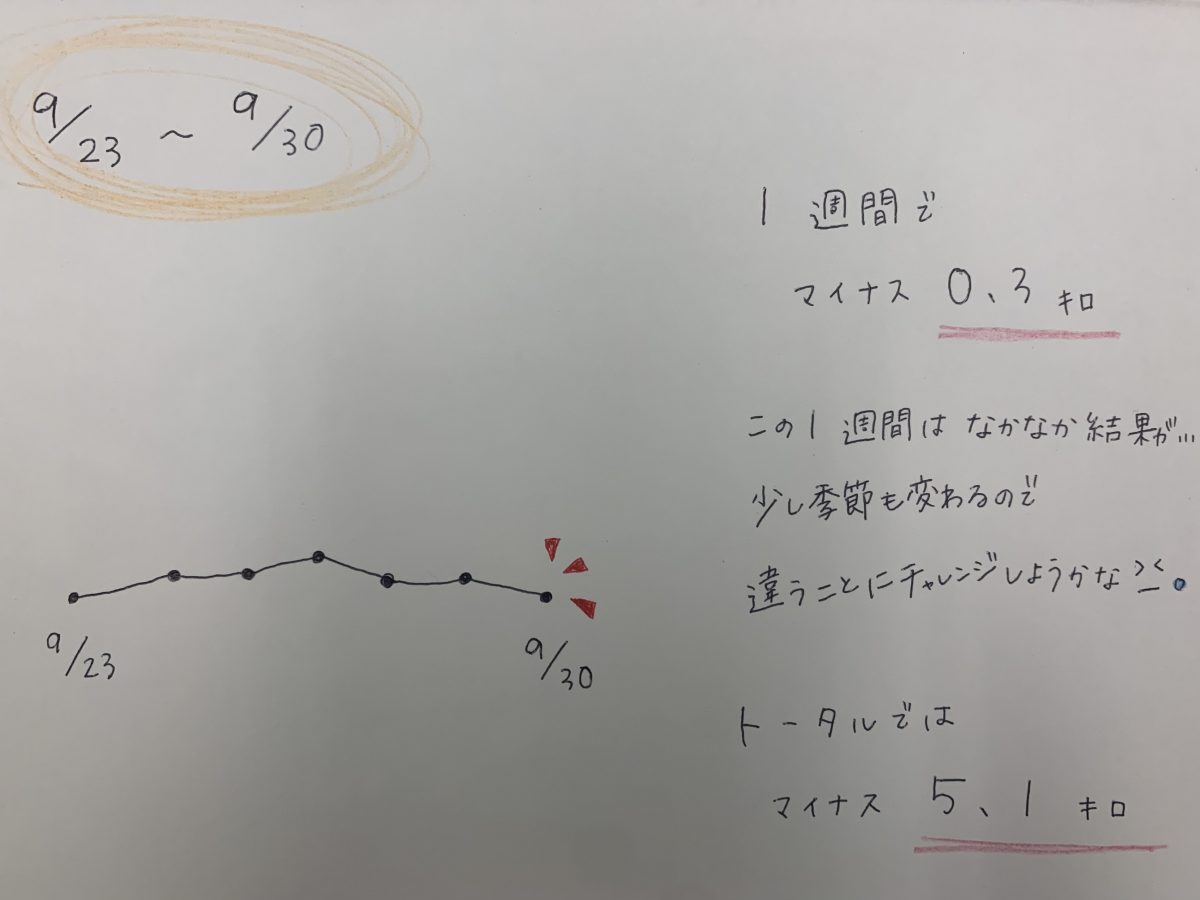 9/23 ~ 9/30
1週間で
マイナス 0、3 キロ
この1週間は なかなか結果が...
少し季節も変わるので
違うことにチャレンジしようかな ><。
トータルでは
マイナス 5、1 キロ
9/23
9/30